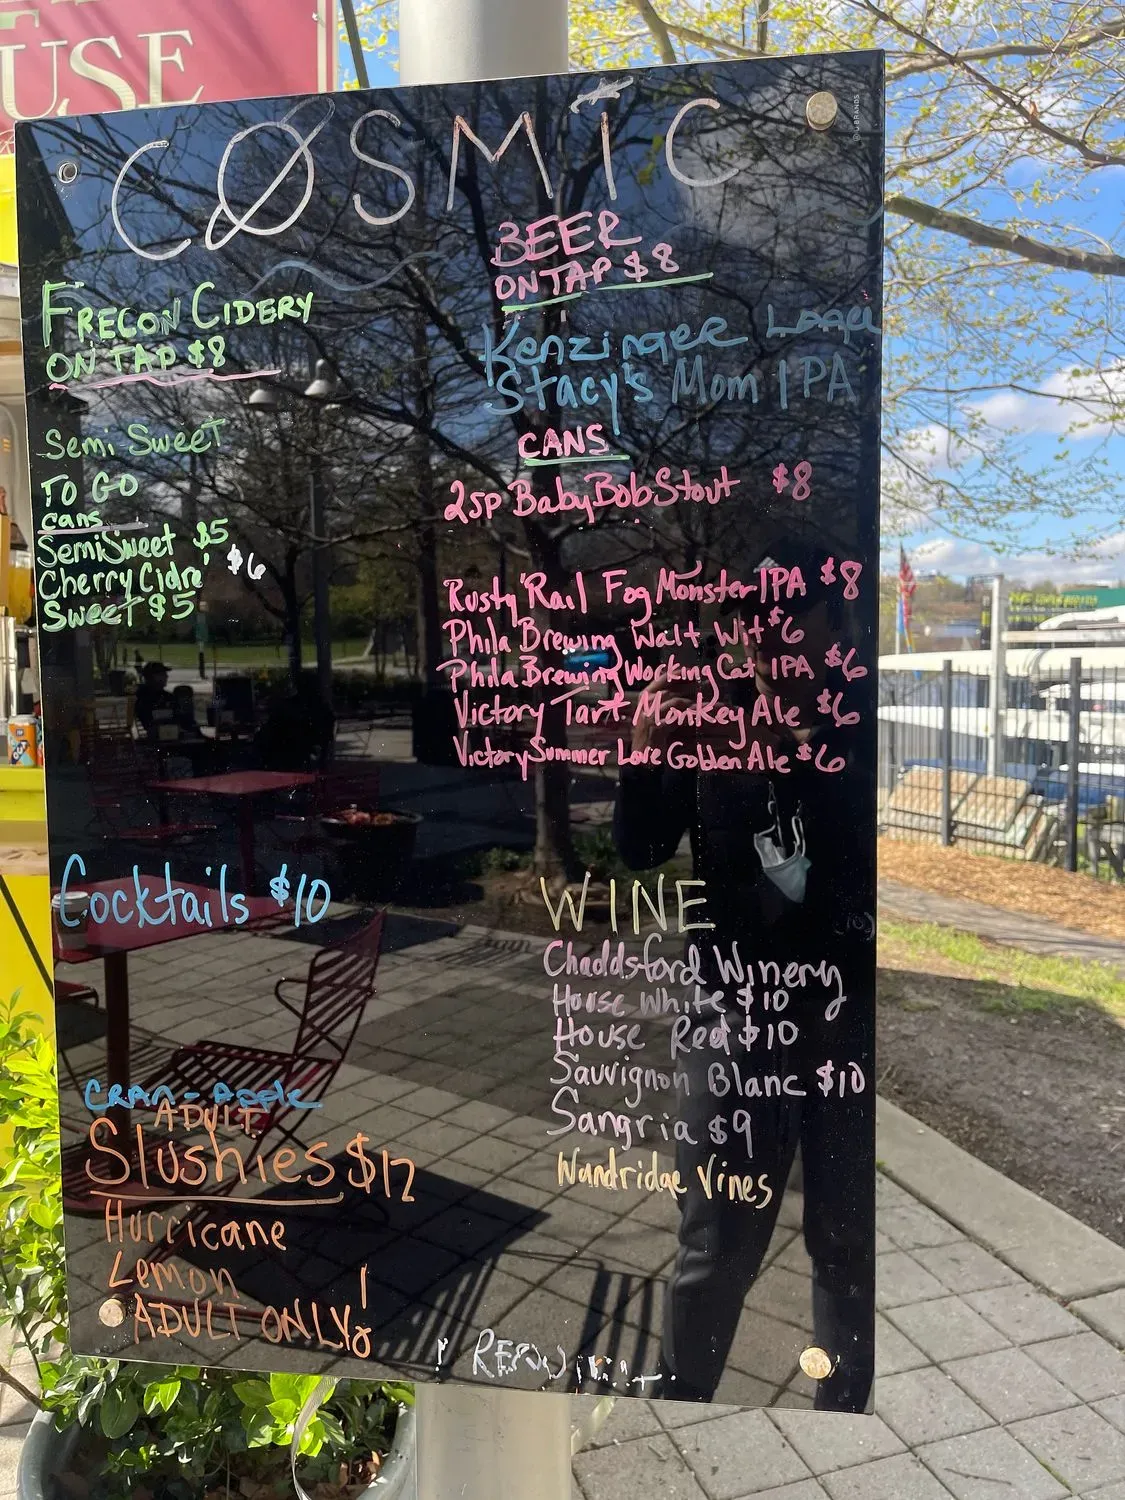 USE
COSMIC
U BRANDS
FRECON CIDERY
ON TAP $8
Semi Sweet
TO GO
cans
SemiSweet $5
Cherry Cidre' $6
Sweet $5
BEER
ON TAP $8
Kenzinger Lager
Stacy's Mom IPA
CANS
2sp Baby Bob Stout $8
Rusty Rail Fog Monster IPA $8
Phila Brewing Walt Wit $6
Phila Brewing Working Cat IPA $6
Victory Tart Monkey Ale $6
Victory Summer Love Golden Ale $6
Cocktails $10
CRAN-Apple
ADULT
Slushies $12
Hurricane
Lemon
ADULT ONLY!
WINE
Chaddsford Winery
House White $10
House Red $10
Sauvignon Blanc $10
Sangria $9
Wandridge Vines